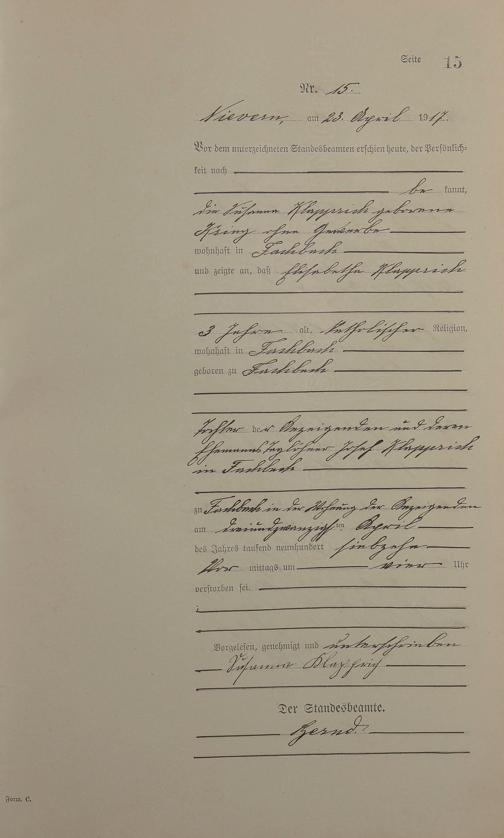 Seite 15
Nr. 15.
Nievern, am 23. April 1917.
Vor dem unterzeichneten Standesbeamten erschien heute, der Persönlich-
keit nach
be kannt,
die Susanna Klapprich geborene
Kring ohne Gewerbe
wohnhaft in Fachbach
und zeigte an, daß Elisabetha Klapprich
3 Jahre alt, katholischer Religion,
wohnhaft in Fachbach
geboren zu Fachbach
Tochter der Anzeigenden und deren
Ehemannes Taglöhner Josef Klapprich
in Fachbach
zu Fachbach in der Wohnung der Anzeigenden
am dreiundzwanzigsten April
des Jahres tausend neunhundert siebzehn
Vor mittags um vier Uhr
verstorben sei.
Vorgelesen, genehmigt und unterschrieben
Susanna Klapprich
Der Standesbeamte.
Form. C.